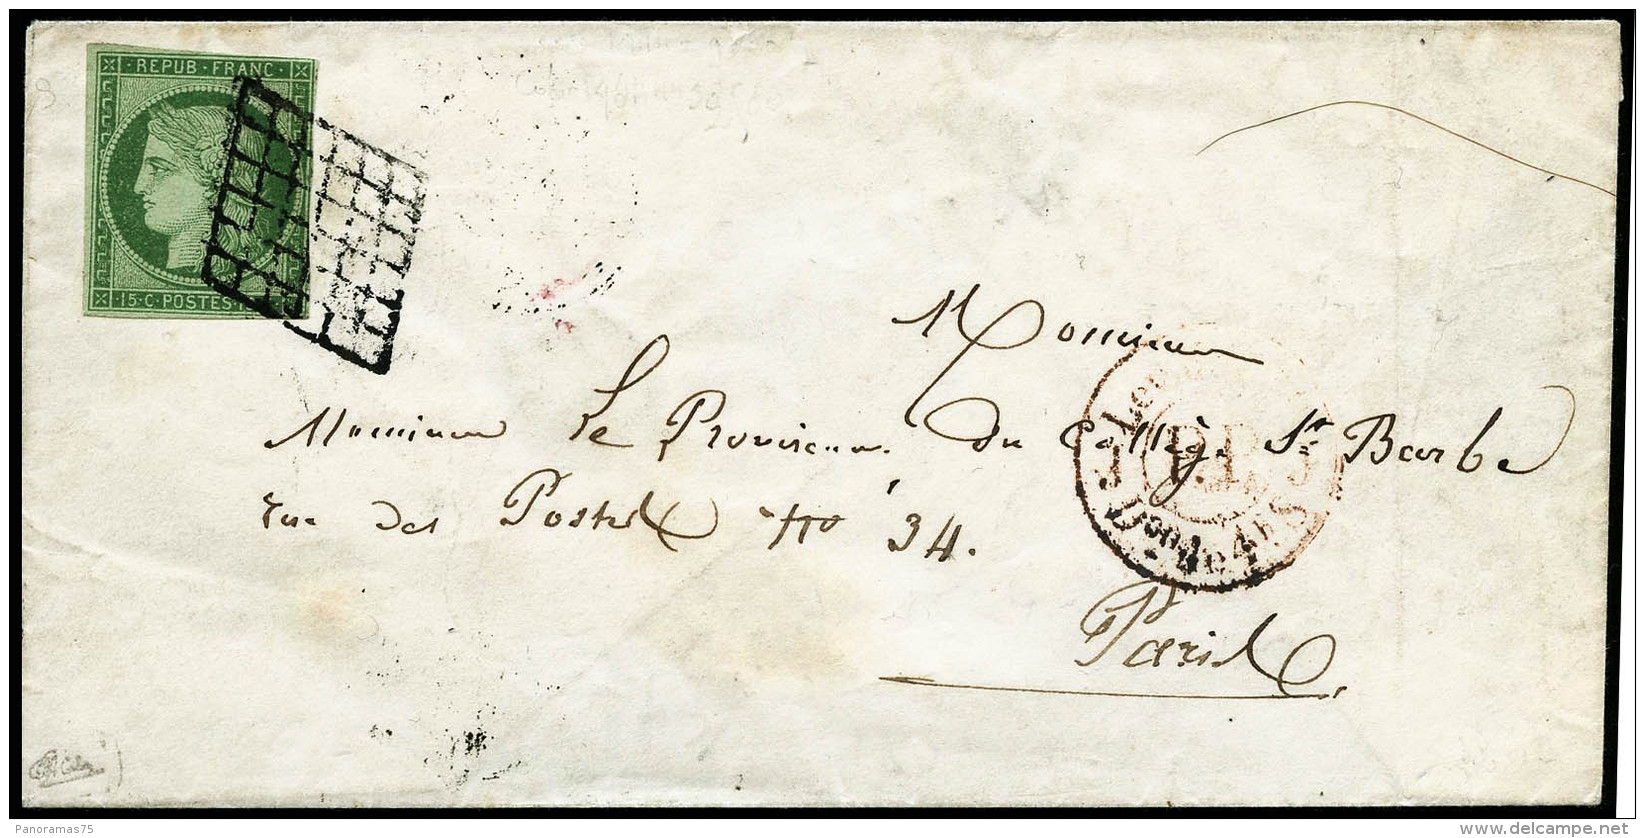 REPUB·FRANC·
·15·C·POSTES·
Monsieur
Monsieur Le Proviseur. du Collège St Barbe
rue des Postes No 34.
Paris
Panoramas75
delcampe.net